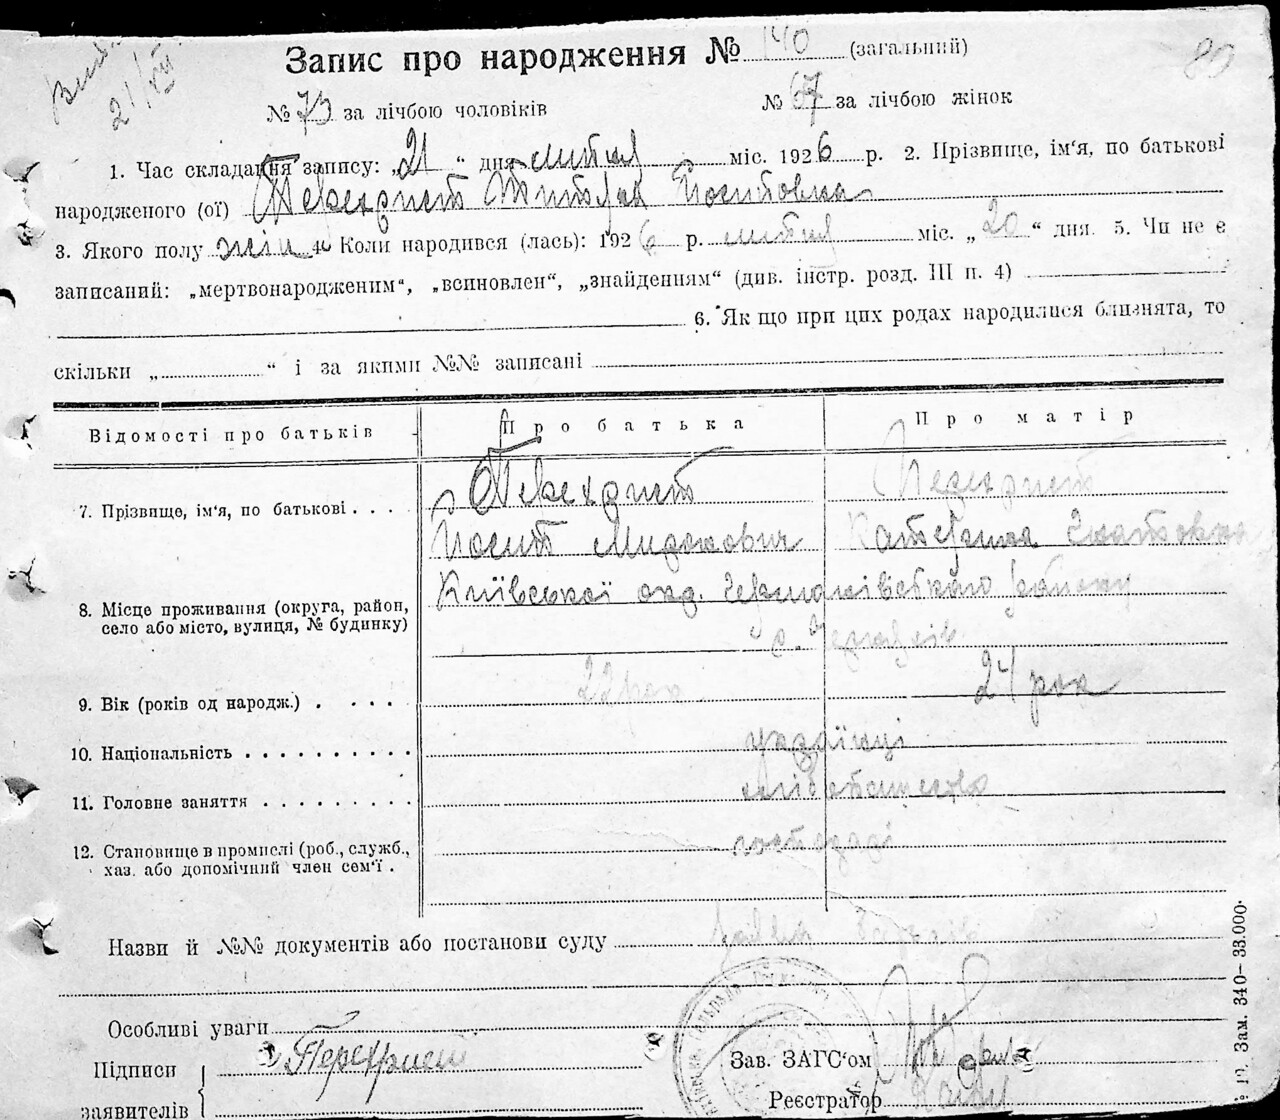 Запис про народження № 140 (загальний)
80
21/XII
№ 73 за лічбою чоловіків № 67 за лічбою жінок
1. Час складання запису: „21“ дня лютня міс. 1926 р. 2. Прізвище, ім‘я, по батькові
народженого (ої) Перехрист Йоситовна
3. Якого полу жін 4. Коли народився (лась): 1926 р. лютня міс. „20“ дня. 5. Чи не є
записаний: „мертвонародженим“, „всиновлен“, „знайденням“ (див. інстр. розд. III п. 4)
6. Як що при цих родах народилися близнята, то
скільки „ “ і за якими №№ записані
Відомості про батьків Про батька Про матір
7. Прізвище, ім‘я, по батькові . . . . Перехрист Перехрист
Йосит Миронович Катерина Гнатовна
8. Місце проживання (округа, район, село або місто, вулиця, № будинку) Київської окр. Германівського району
с.
9. Вік (років од народж.) . . . . . 22 рок 24 рок
10. Національність . . . . . . . . . . українці
11. Головне заняття . . . . . . . . .
12. Становище в промислі (роб., служб., хаз. або допомічний член сем‘ї . господарі
Назви й №№ документів або постанови суду заява батьків
Особливі уваги
Підписи заявителів Перехрист
Зав. ЗАГС‘ом
Реєстратор
Зам. 340–33.000.